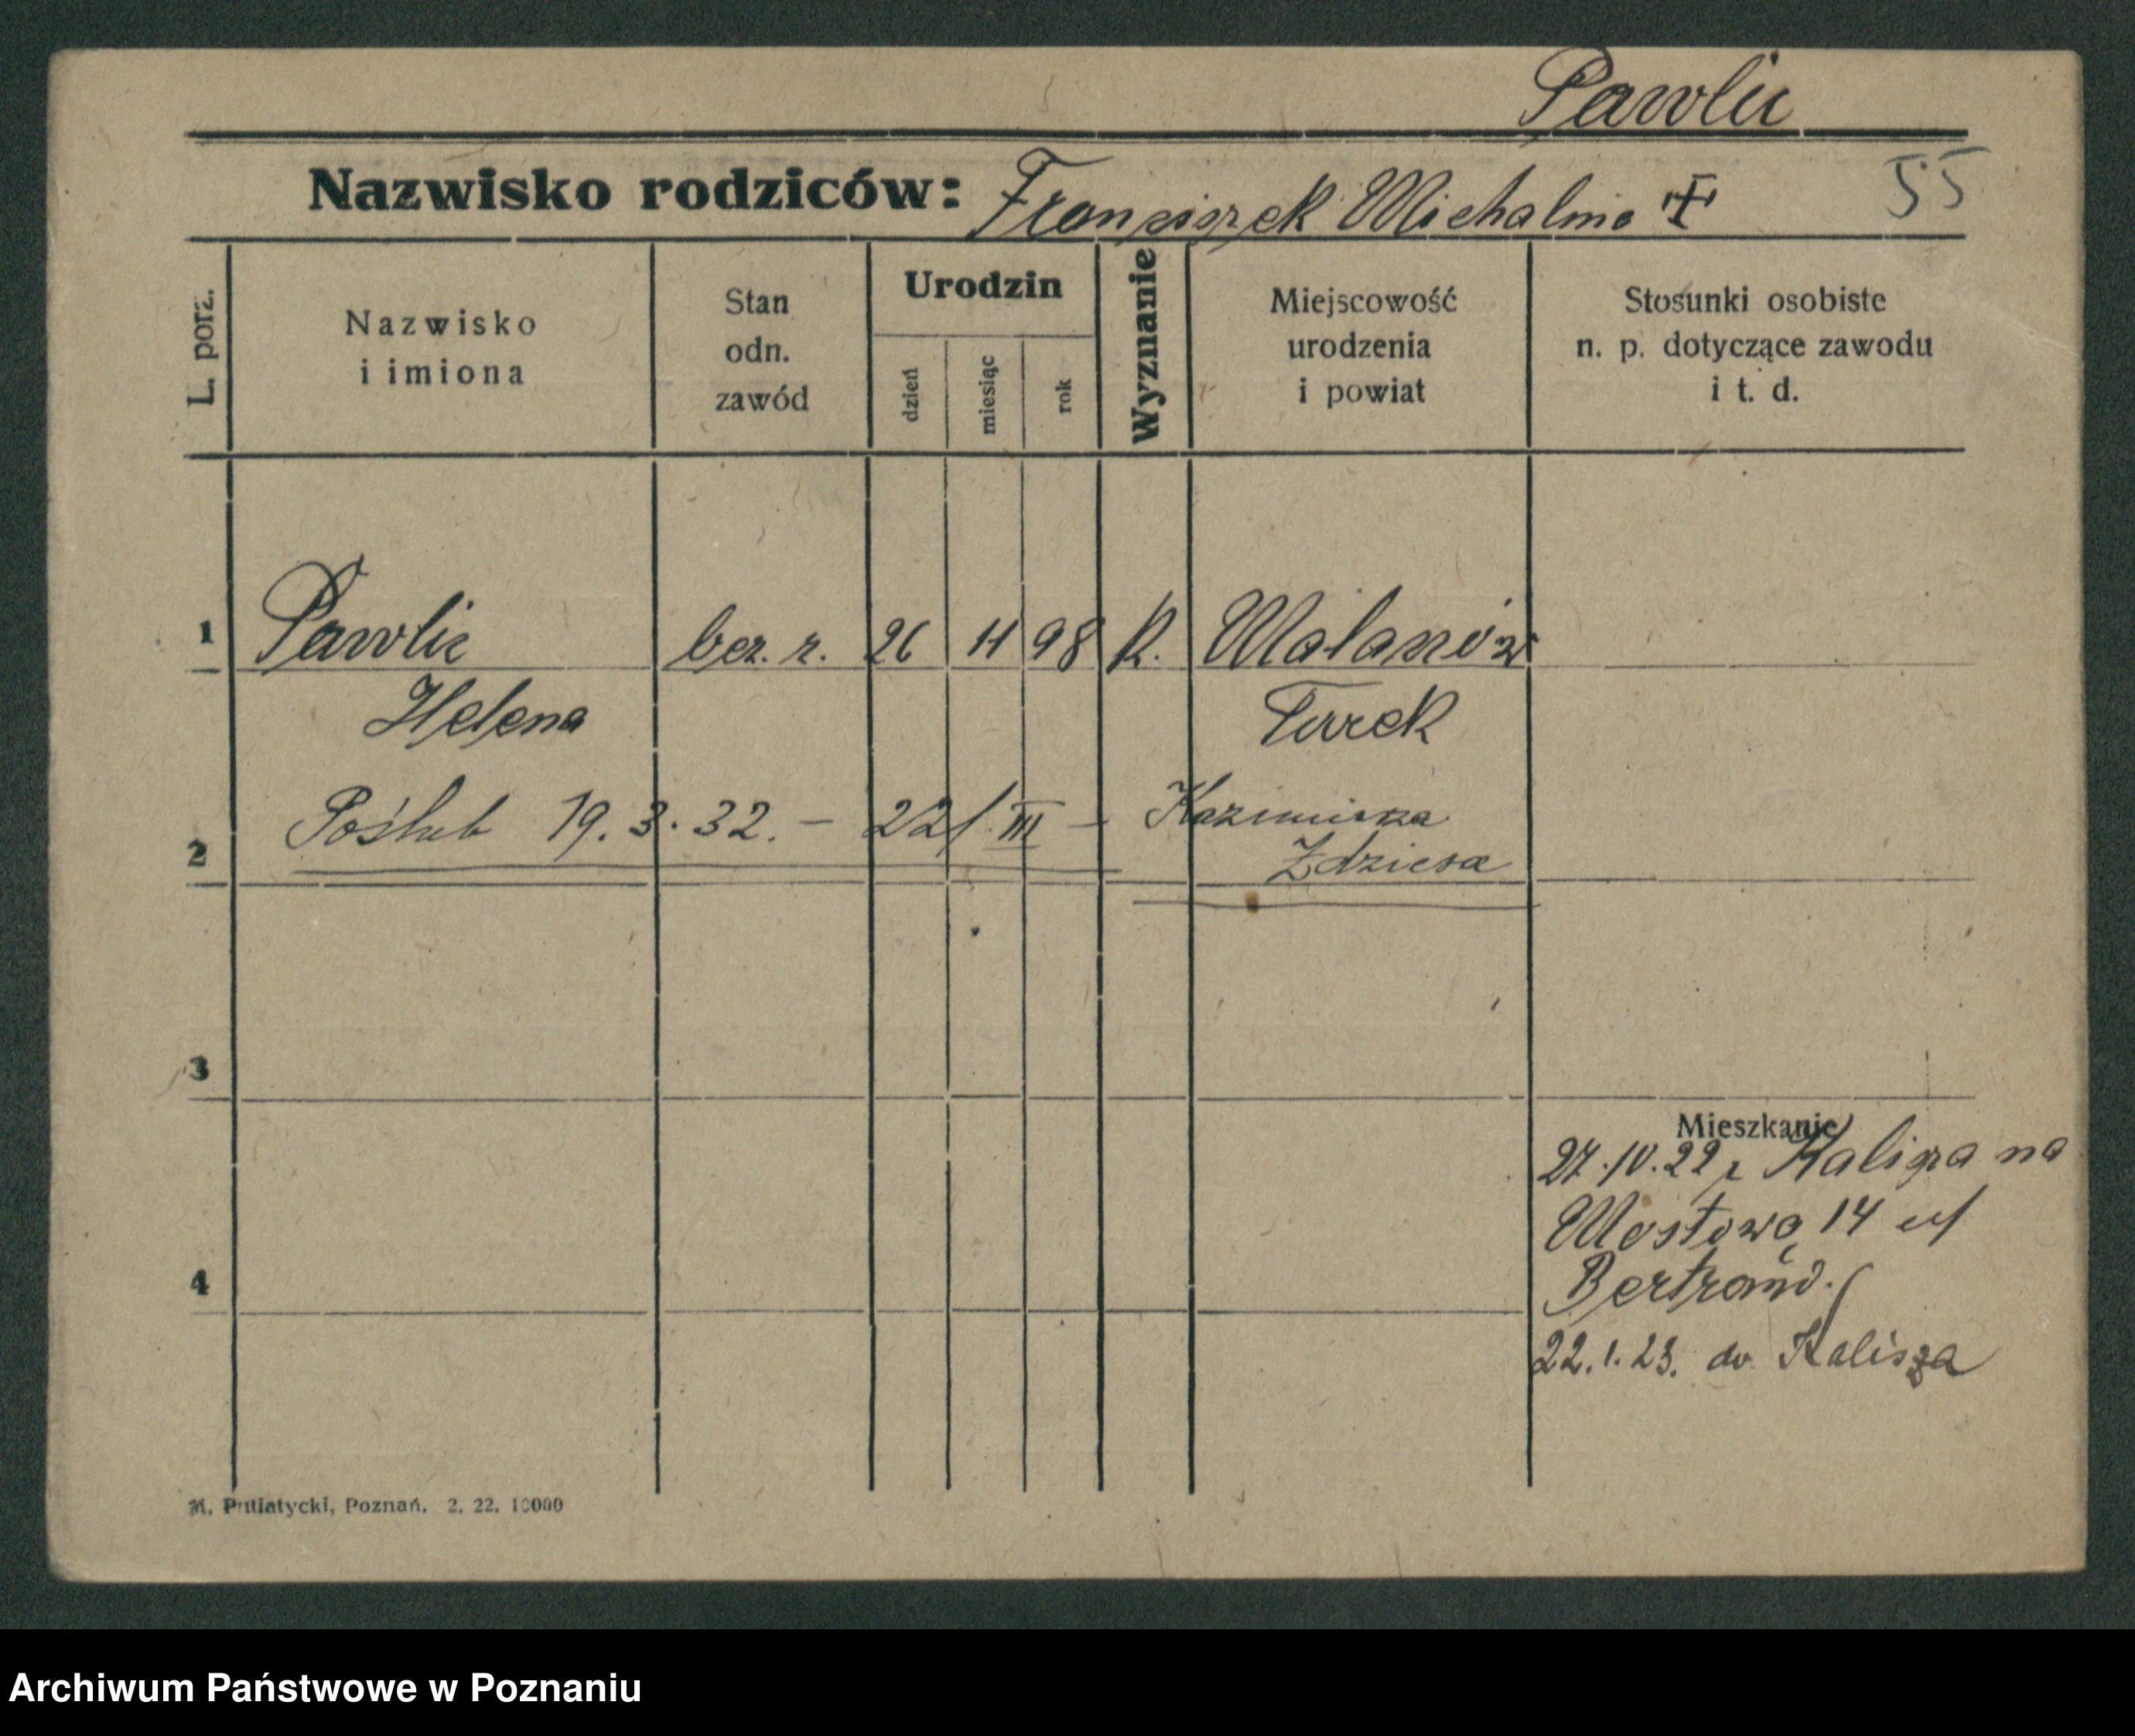 Pawlic
Nazwisko rodziców: Franciszek Michalina 55
L. porz.
Nazwisko i imiona
Stan odn. zawód
Urodzin
dzień
miesiąc
rok
Wyznanie
Miejscowość urodzenia i powiat
Stosunki osobiste n. p. dotyczące zawodu i t. d.
1 Pawlic bez. r. 26 11 98 K. Malanów
Helena Turek
Poślub 19. 3. 32. – 221/III – Kazimierza
2 Zdziesa
3
Mieszkanie
27.10.22 z Kalisza na
Mostową 14 u/
4 Bertrand.
22.1.23. do Kalisza
M. Putiatycki, Poznań. 2. 22. 10000
Archiwum Państwowe w Poznaniu